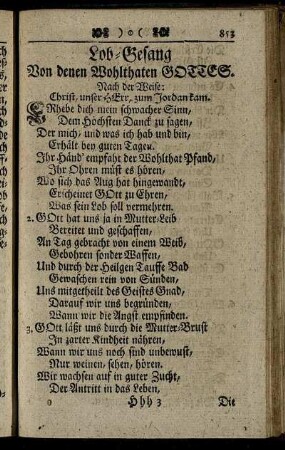 )o( 853
Lob-Gesang
Von denen Wohlthaten GOTTES.
Nach der Weise:
Christ, unser HErr, zum Jordan kam.
ERhebe dich mein schwacher Sinn,
Dem Höchsten Danck zu sagen,
Der mich, und was ich hab und bin,
Erhält bey guten Tagen.
Ihr Händ' empfaht der Wohlthat Pfand,
Ihr Ohren müst es hören,
Wo sich das Aug hat hingewandt,
Erscheinet GOtt zu Ehren,
Was sein Lob soll vermehren.
2. GOtt hat uns ja in Mutter-Leib
Bereitet und geschaffen,
An Tag gebracht von einem Weib,
Gebohren sonder Waffen,
Und durch der Heilgen Tauffe Bad
Gewaschen rein von Sünden,
Uns mitgetheilt des Geistes Gnad,
Darauf wir uns begründen,
Wann wir die Angst empfinden.
3. GOtt läßt uns durch die Mutter-Brust
In zarter Kindheit nähren,
Wann wir uns noch sind unbewust,
Nur weinen, sehen, hören.
Wir wachsen auf in guter Zucht,
Der Antritt in das Leben,
Hhh 3 Die